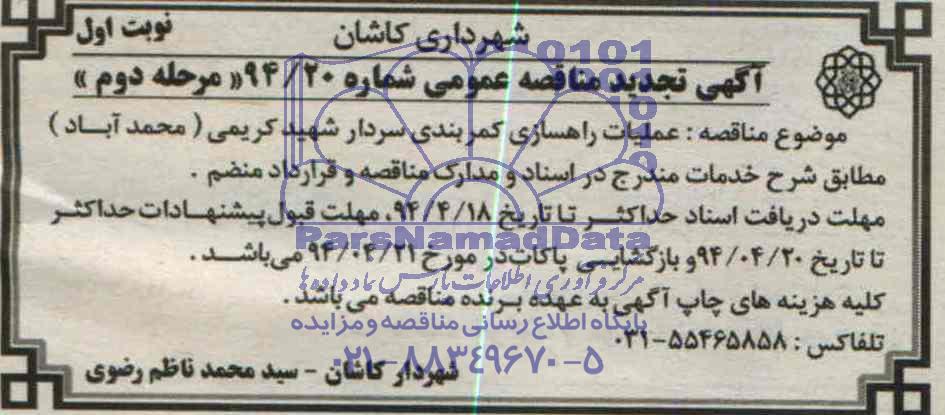 شهرداری کاشان
نوبت اول
آگهی تجدید مناقصه عمومی شماره ۹۴/۲۰ « مرحله دوم »
موضوع مناقصه : عملیات راهسازی کمربندی سردار شهید کریمی ( محمد آبـاد )
مطابق شرح خدمات مندرج در اسناد و مدارک مناقصه و قرارداد منضم .
مهلت دریافت اسناد حداکثـر تـا تاریخ ۹۴/۴/۱۸، مهلت قبول پیشنهـادات حداکثـر
تا تاریخ ۹۴/۰۴/۲۰ و بازگشایـی پاکات در مورخ ۹۴/۰۴/۲۱ می‌باشـد .
کلیه هزینه های چاپ آگهی به عهده بـرنده مناقصه می باشد .
تلفاکس : ۵۵۴۶۵۸۵۸-۰۳۱
شهردار کاشان - سید محمد ناظم رضوی
0101
ParsNamadData
مرکز فرآوری اطلاعات پارس نماد داده ها
پایگاه اطلاع رسانی مناقصه و مزایده
۰۲۱-۸۸۳۴۹۶۷۰-۵